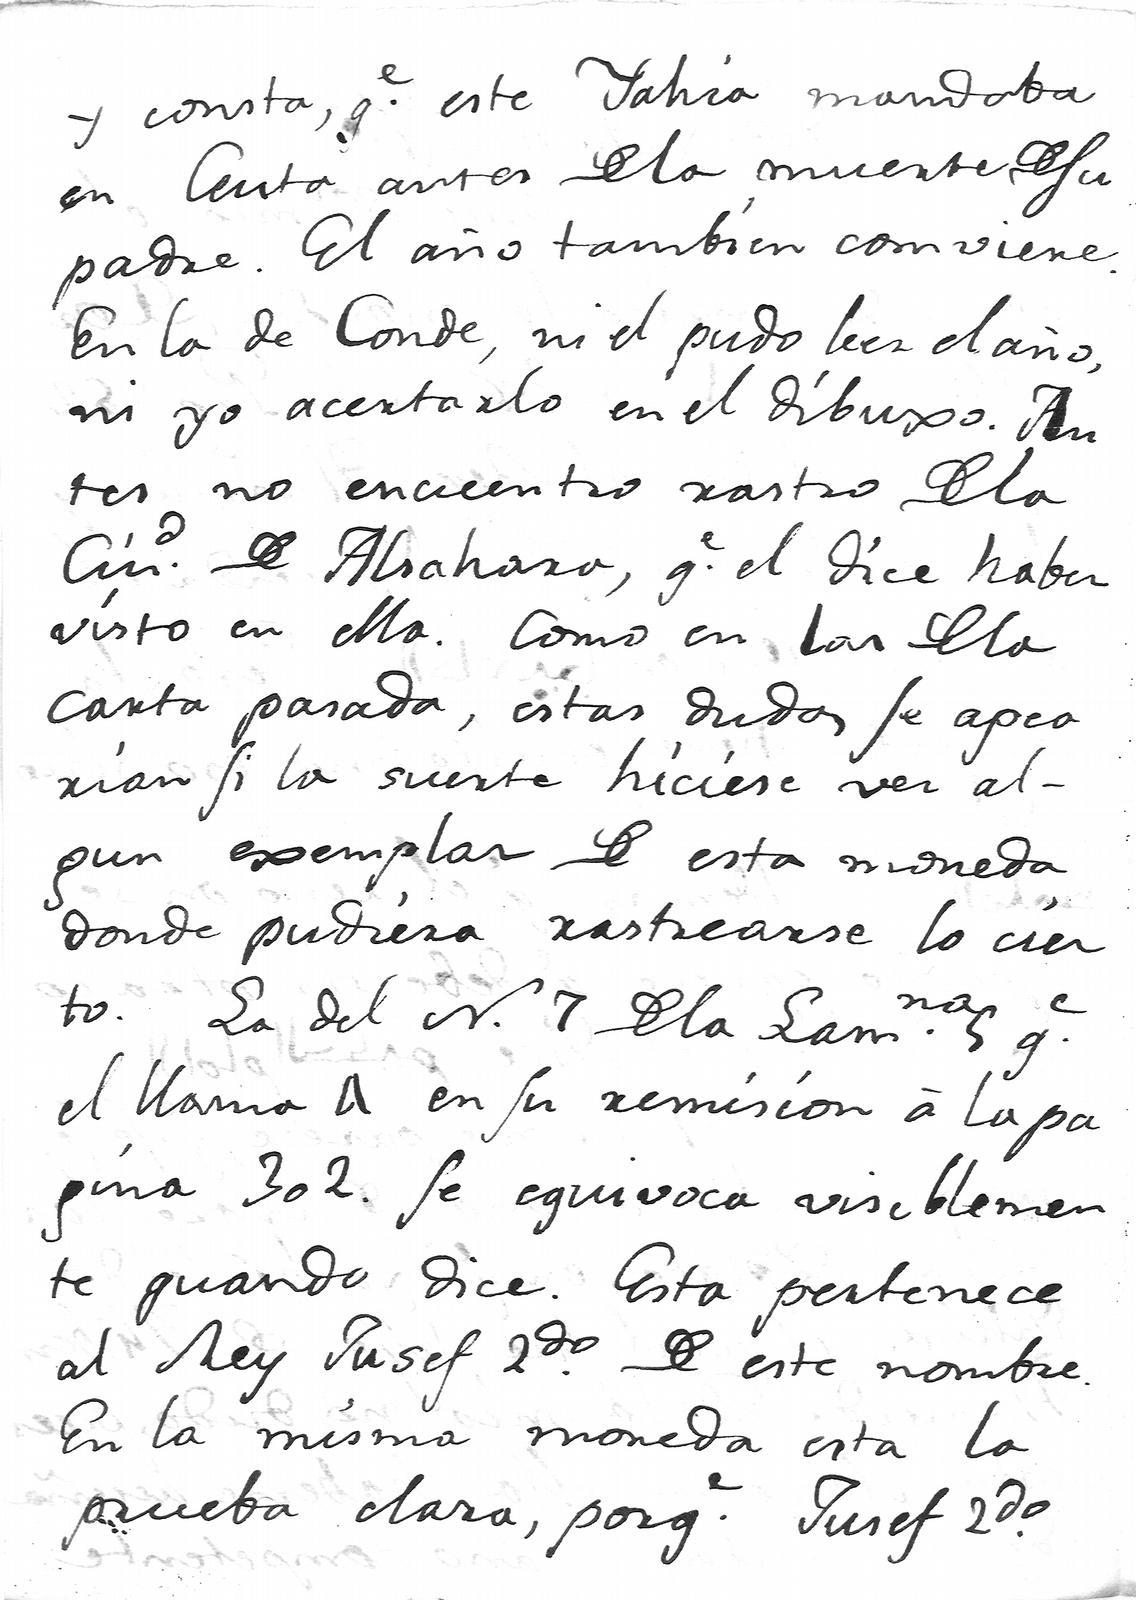 y consta, q.e este Yahia mandaba
en Ceuta antes Dela muerte De Su
padre. El año tambien comviene.
En la de Conde, ni el pudo leer el año,
ni yo acertarlo en el dibuxo. An
tes no encuentro rastro Dela
Ciu.d De Alzahara, q.e el dice haber
visto en ella. Como en las Dela
carta pasada, estas dudas se apea
rian si la suerte hiciese ver al-
gun exemplar De esta moneda
donde pudiera rastrearse lo cier
to. La del N. 7 Dela Lam.na 5 q.e
el llama A en su remision à la pa
gina 302. se equivoca visiblemen
te quando dice. Esta pertenece
al Rey Jusef 2.do De este nombre.
En la misma moneda esta la
prueba clara, porq.e Jusef 2.do